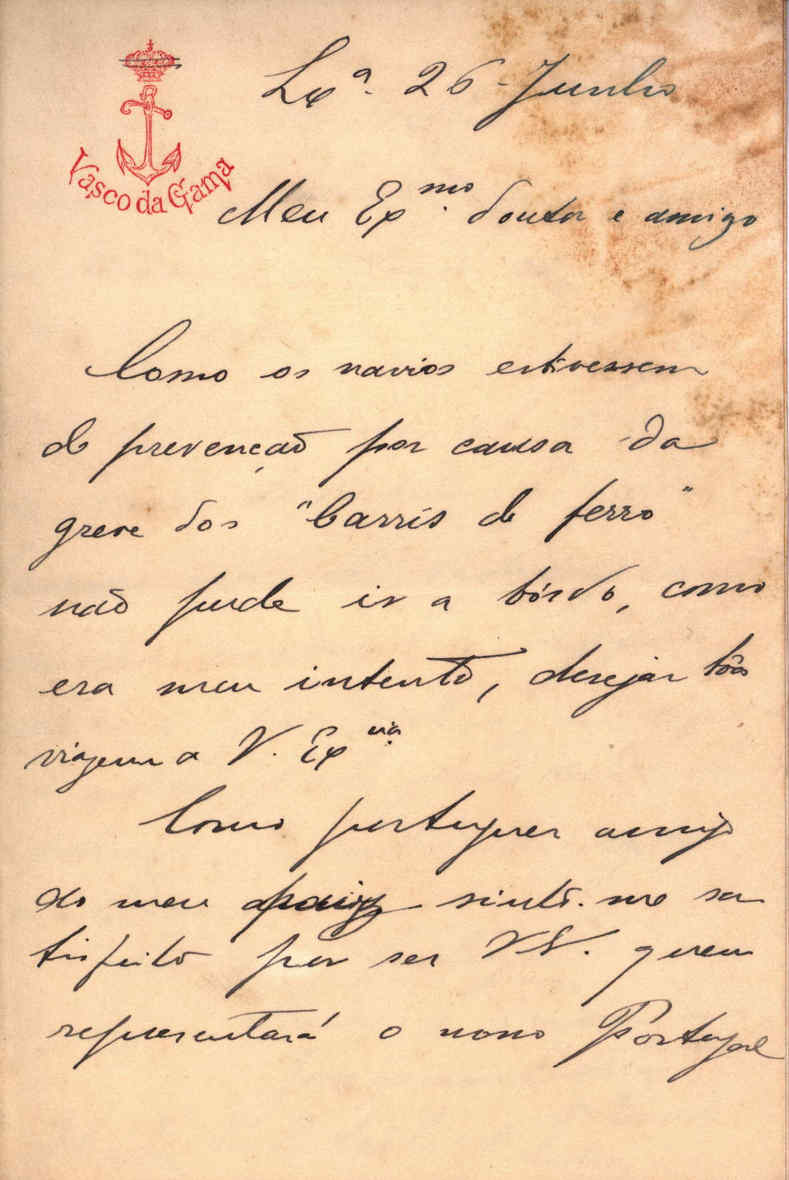 Vasco da Gama
Lxª. 26-Junho
Meu Exmo. doutor e amigo
Como os navios estivessem
de prevenção por causa da
greve dos "Carris de ferro"
não pude ir a bórdo, como
era meu intento, desejar bôa
viagem a V. Excia.
Como portuguez amigo
do meu paiz sinto-me sa
tisfeito por ser V. quem
representará o nosso Portugal